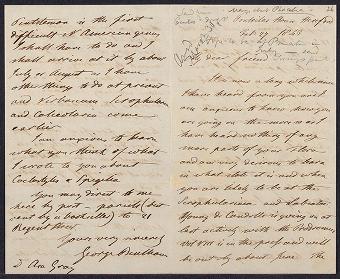 Pentstemon is the first
difficult N American genus
I shall have to do and I
shall arrive at it by about
July or August as I have
other things to do at present
and Verbascum Scrophularia
and Calceolaria come
earlier.
I am anxious to know
what you think of what
I wrote to you about
Coelostylis & Spigelia
You may direct to me
here by post - parcels (but
sent by a bookseller) to
Regent Street
Yours very sincerely
George Bentham
D Asa Gray
Pontrilas House Hereford
Feb 27
My dear friend
It is now a long while since
I have heard from you and I
am anxious to know how you
are going on the more so as I
have heard nothing of any
more parts of your Flora
and am very desirous to know
in what state it is and when
you are likely to be at the
Scrophulariaceae and Labiatae
Alphonse de Candolle is going on at
last actively with the Prodromus,
Vol VIII is in the press and will
be out by about June. The